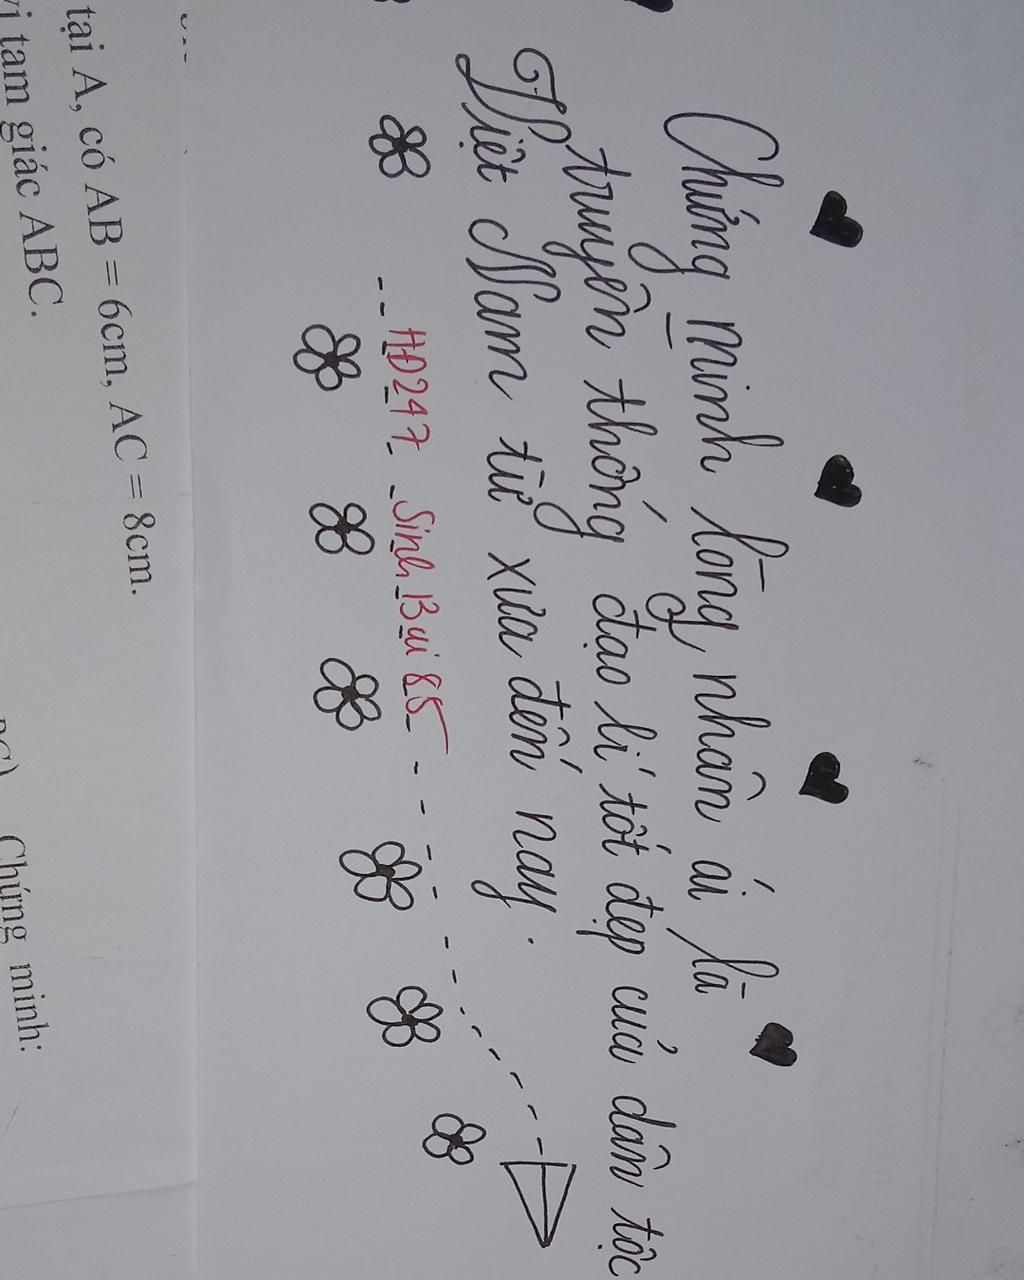 Chứng minh lòng nhân ái là
truyền thống đạo lí tốt đẹp của dân tộc
Việt Nam từ xưa đến nay.
HĐ247 Sinh Bùi 85
tại A, có AB = 6cm, AC = 8cm.
vi tam giác ABC.
Chứng minh: